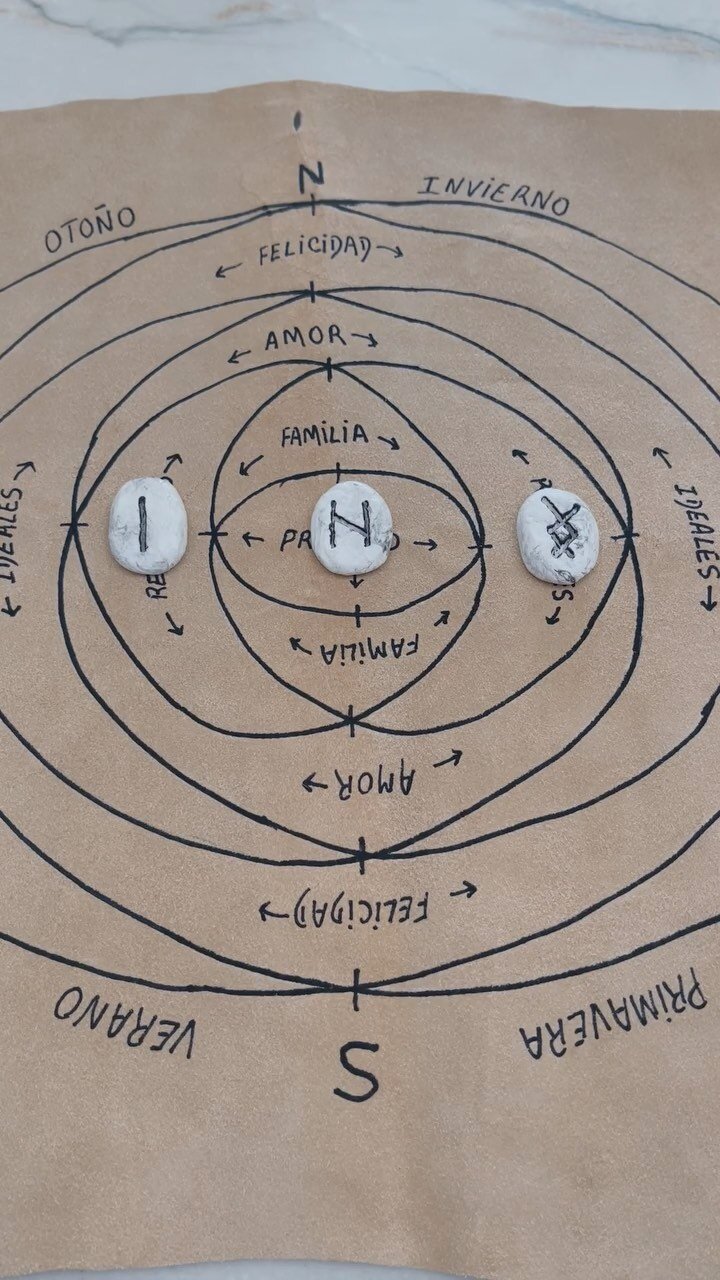 N
INVIERNO
OTOÑO
FELICIDAD
AMOR
FAMILIA
IDEALES
IDEALES
FAMILIA
AMOR
FELICIDAD
VERANO
PRIMAVERA
S